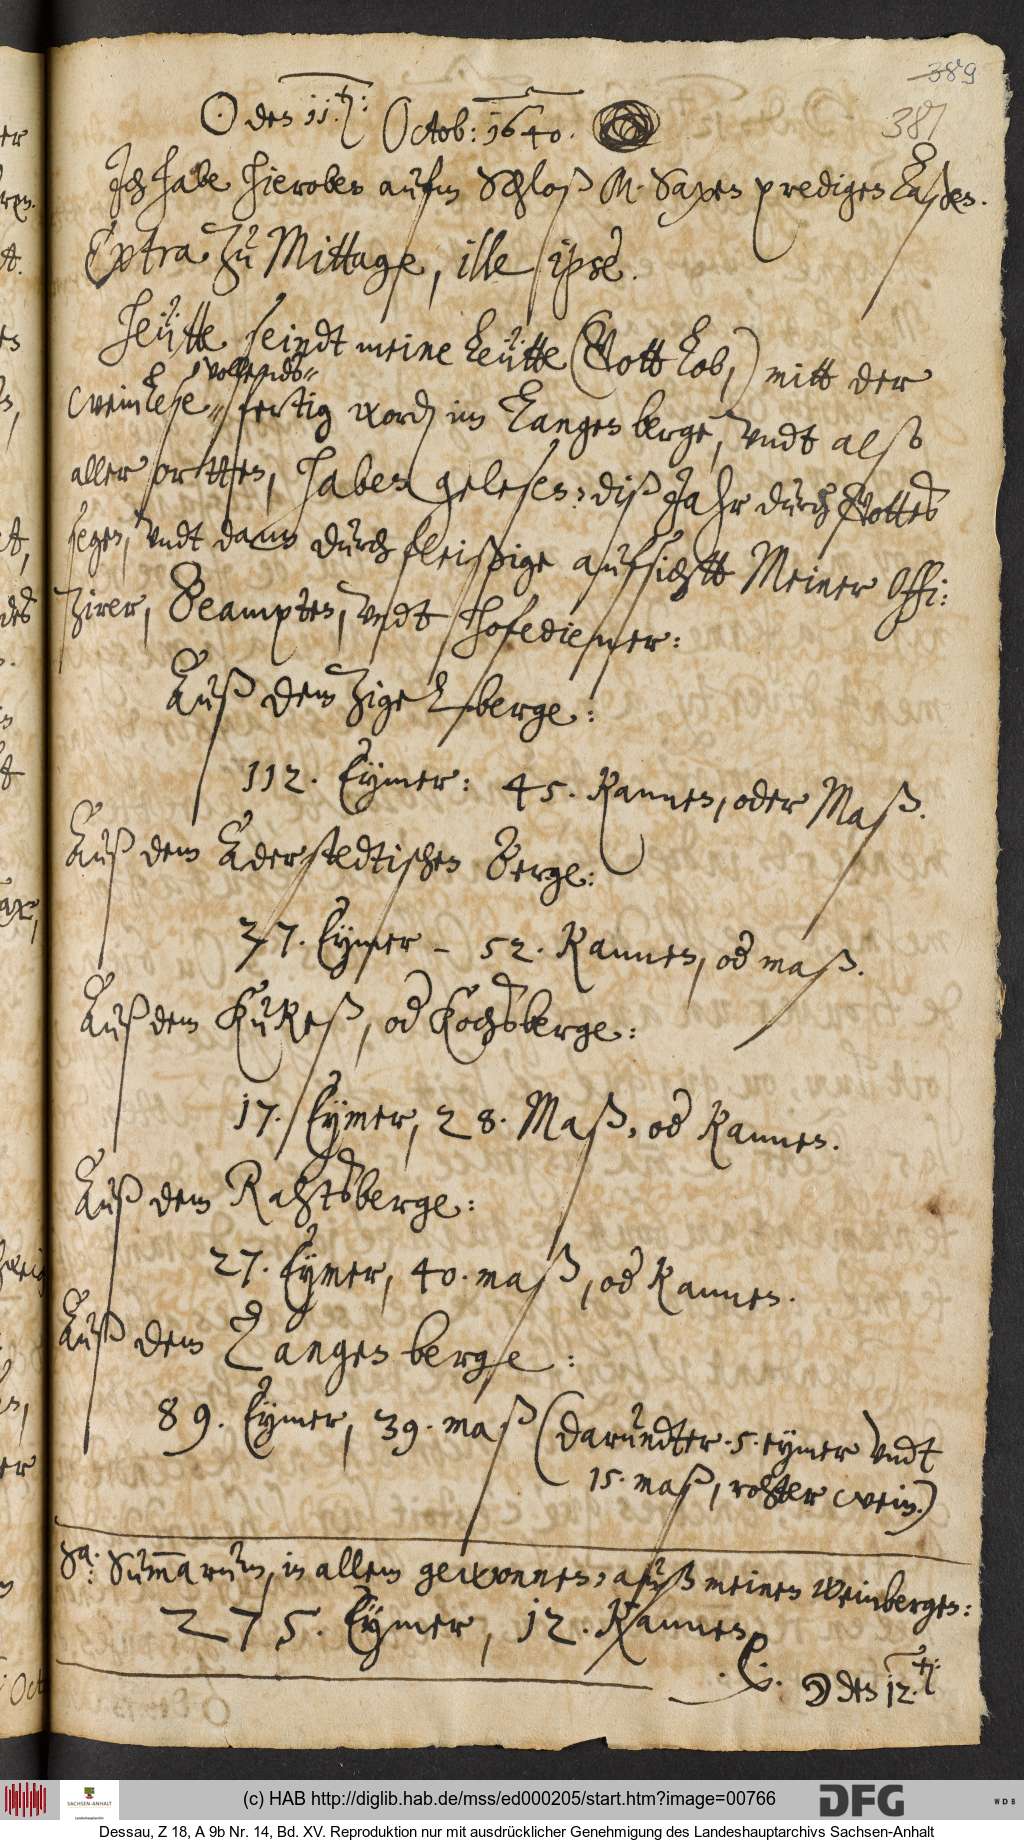 389
387
☉ den 11.ten: Octob: 1640.
Ich habe hieroben aufm Schloß M. Saxen predigen laßen.
Extra zu Mittage, ille ipse.
Heütte seindt meine Leütte (Gott lob,) mitt der
vollends
weinlese fertig word im Langen berge, vndt also
aller ortten, haben gelesen, diß Jahr durch Gottes
segen, vndt dann durch fleißige aufsichtt Meiner Offi:
zirer, Beampten, vndt Hofediener:
Auß dem Zigelberge:
112. Eymer: 45. Kannen, oder Maß.
Auß dem Aderstedtischen Berge:
37. Eymer – 52. Kannen, od maß.
Auß dem Kukeß, od Kochsberge:
17. Eymer, 28. Maß, od Kannen.
Auß dem Rahtsberge:
27. Eymer, 40. maß, od Kannen.
Auß dem Langen berge:
89. Eymer, 39. maß (darundter 5. eymer vndt
15. maß, rohter wein.)
Sa: Summarum, in allem gewonnen, auß meinen Weinbergen:
275. Eymer, 12. Kannen
☽ den 12.ten:
(c) HAB http://diglib.hab.de/mss/ed000205/start.htm?image=00766
SACHSEN-ANHALT
DFG
WDB
Dessau, Z 18, A 9b Nr. 14, Bd. XV. Reproduktion nur mit ausdrücklicher Genehmigung des Landeshauptarchivs Sachsen-Anhalt